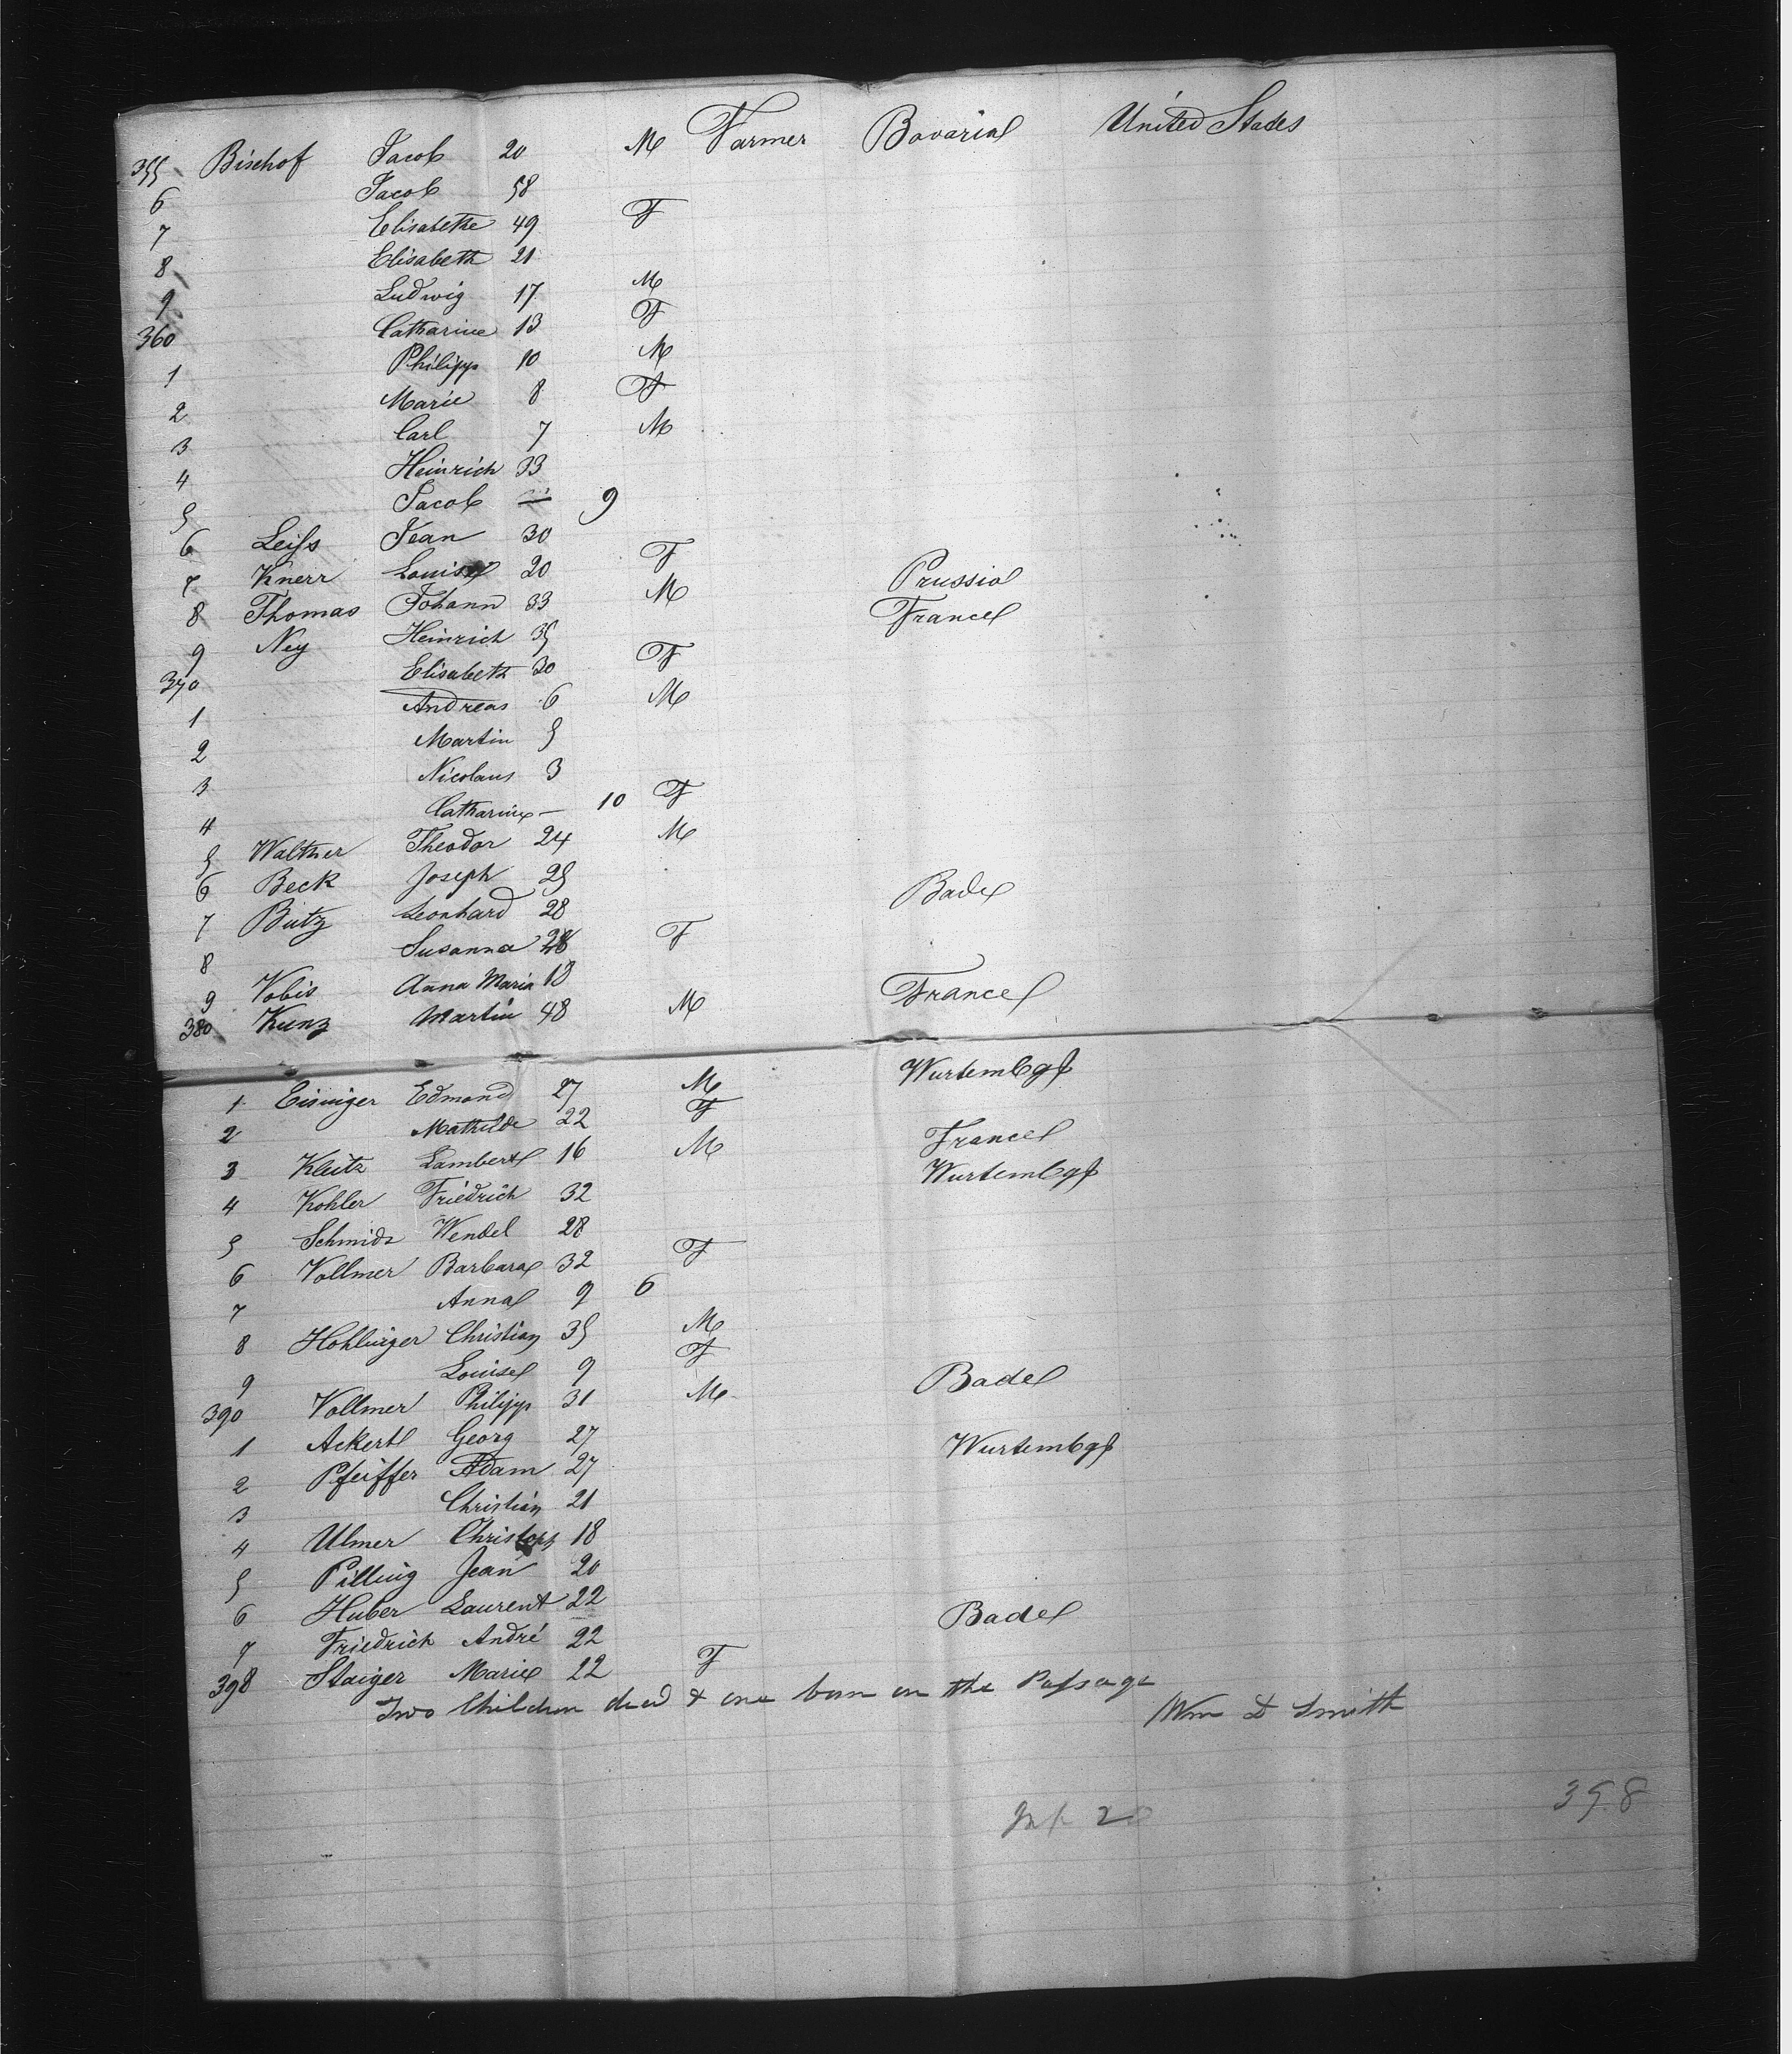 355 Bischof Jacob 20 M Farmer Bavaria United States
6 Jacob 58
7 Elisabethe 49 F
8 Elisabeth 21
9 Ludwig 17 M
360 Catharine 13 F
1 Philipp 10 M
2 Marie 8 F
3 Carl 7 M
4 Heinrich 33
5 Jacob — 9
6 Leiss Jean 30
7 Knerr Louise 20 F
8 Thomas Johann 33 M Prussia
9 Ney Heinrich 35 France
370 Elisabeth 30 F
1 Andreas 6 M
2 Martin 5
3 Nicolaus 3
4 Catharine — 10 F
5 Walther Theodor 24 M
6 Beck Joseph 25
7 Butz Leonhard 28 Bade
8 Susanna 28 F
9 Vobis Anna Maria 18
380 Kunz Martin 48 M France
1 Eisinger Edmond 27 M Wurtembg
2 Mathilde 22 F
3 Kleitz Lambert 16 M France
4 Kohler Friedrich 32 Wurtembg
5 Schmidt Wendel 28
6 Vollmer Barbara 32 F
7 Anna 9 6
8 Hohlinger Christian 35 M
9 Louise 9 F
390 Vollmer Philipp 31 M Bade
1 Ackert Georg 27
2 Pfeiffer Adam 27 Wurtembg
3 Christian 21
4 Ulmer Christoph 18
5 Pilling Jean 20
6 Huber Laurent 22
7 Friedrich André 22 Bade
398 Staiger Marie 22 F
Two Children died & one born on the Passage
Wm D Smith
398